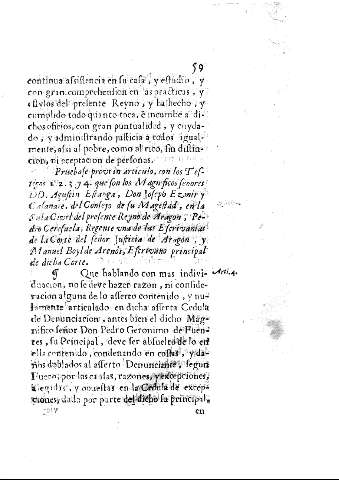 59
continua assistencia en su casa, y estudio, y
con gran comprehension en las practicas, y
estylos del presente Reyno, y ha hecho, y
cumplido todo quanto toca, è incumbe a di-
chos oficios, con gran puntualidad, y cuyda-
do, y administrando justicia a todos igual-
mente, assi al pobre, como al rico, sin distin-
cion, ni aceptacion de personas.
Pruebase provt in articulo, con los Tes-
tigos 1. 2. 3. y 4. que son los Magnificos señores
DD. Agustin Estanga, Don Joseph Ezmir y
Casanate, del Consejo de su Magestad, en la
Sala Civil del presente Reyno de Aragon, Pe-
dro Cerefuela, Regente una de las Escrivanias
de la Corte del señor Justicia de Aragon, y
Manuel Boyl de Arenòs, Escrivano principal
de dicha Corte.
¶ Que hablando con mas indivi- Arti.4.
duacion, no se debe hazer razon, ni conside-
racion alguna de lo asserto contenido, y nu-
lamente articulado en dicha asserta Cedula
de Denunciacion: antes bien el dicho Mag-
nifico señor Don Pedro Geronimo de Fuen-
tes, su Principal, deve ser absuelto de lo en
ella contenido, condenando en costas, y da-
ños doblados al asserto Denunciante, segun
Fuero; por las causas, razones, y excepciones,
alegadas, y opuestas en la Cedula de excep-
ciones, dada por parte del dicho su principal,
en